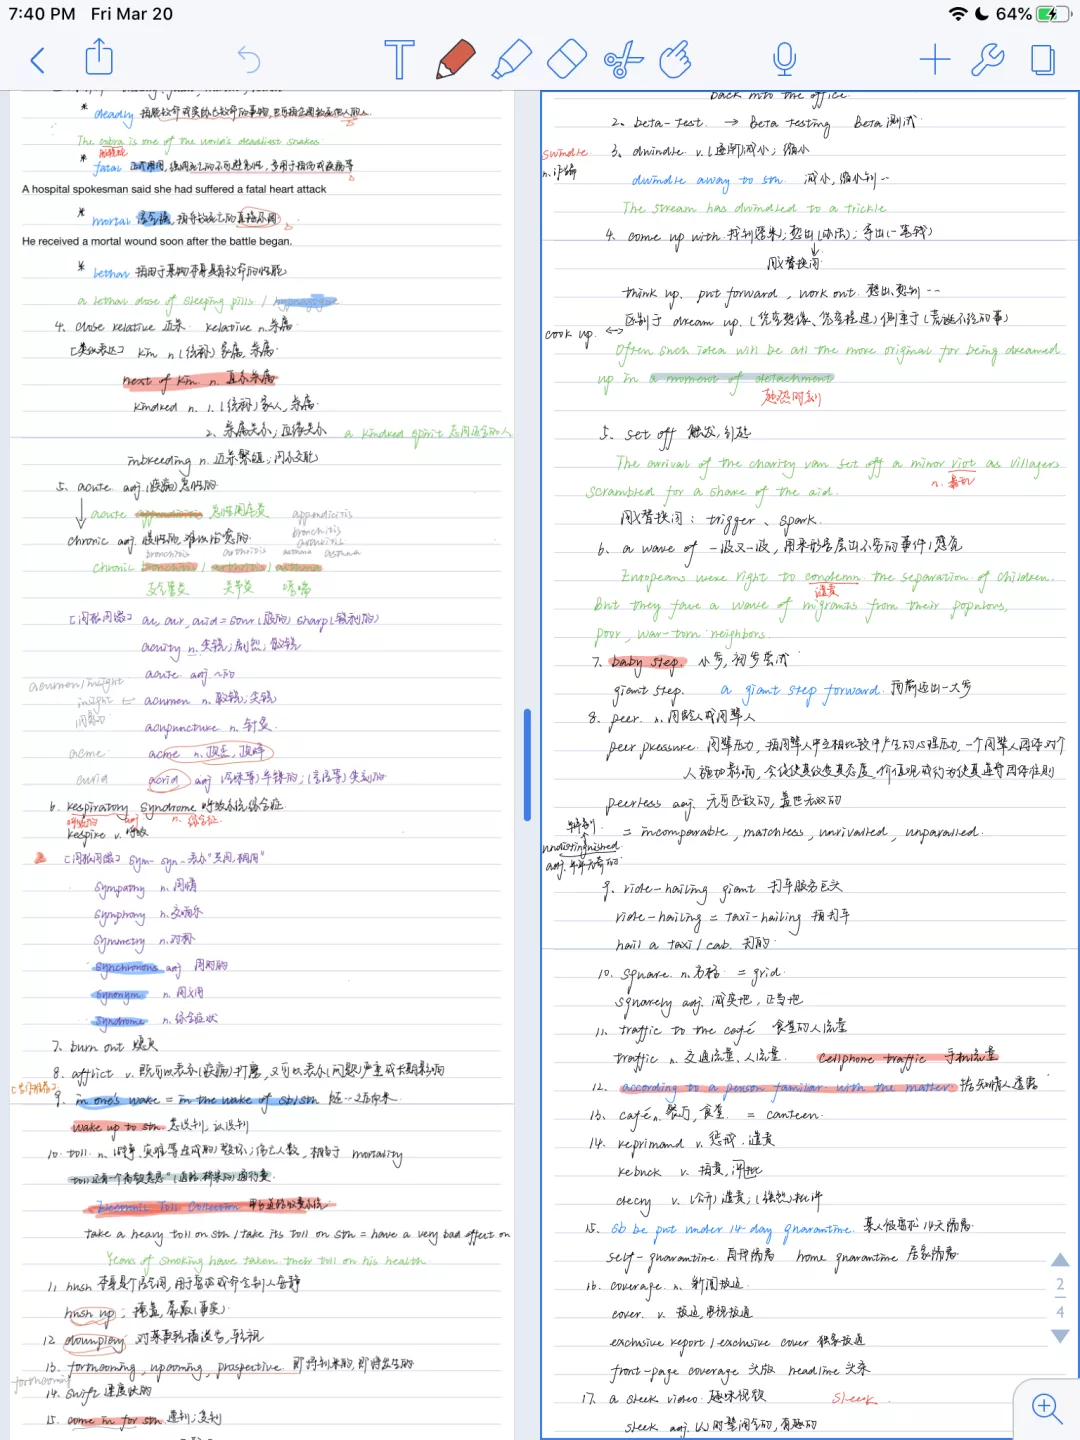 7:40 PM Fri Mar 20
64%
* deadly
The cobra is one of the world's deadliest snakes
* fatal
A hospital spokesman said she had suffered a fatal heart attack
* mortal
He received a mortal wound soon after the battle began.
* lethal 指用于某物本身具有致命的性能
a lethal dose of sleeping pills /
4. close relative 近亲 relative n. 亲属
[类似表达] kin n. (统称) 家属, 亲属
next of kin n. 直系亲属
kindred n. 1. (统称) 家人, 亲属
2. 亲属关系; 血缘关系 a kindred spirit 志同道合的人
inbreeding n. 近亲繁殖; 同系交配
5. acute adj. (疾病) 急性的
acute appendicitis 急性阑尾炎 appendicitis
chronic adj. 慢性的, 难以治愈的 bronchitis
bronchitis arthritis asthma
chronic bronchitis / arthritis / asthma
支气管炎 关节炎 哮喘
[同根同源] ac, acr, acid = sour (酸的) sharp (锐利的)
acuity n. 尖锐; 剧烈; 敏锐
acute adj.
acumen / insight
insight ← acumen n. 敏锐; 尖锐
洞察力
acupuncture n. 针灸
acme acme n. 顶点, 顶峰
acrid acrid adj.
6. respiratory syndrome 呼吸系统综合症
呼吸的 adj n. 综合症
respire v. 呼吸
[同根同源] sym- syn- 表示"共同, 相同"
sympathy n. 同情
symphony n. 交响乐
symmetry n. 对称
synchronous adj 同时的
synonym n. 同义词
syndrome n. 综合症状
7. burn out 熄灭
8. afflict v. 既可以表示(疾病)折磨, 又可以表示(问题)严重或长期影响
9. in one's wake = in the wake of sb/sth
wake up to sth. 意识到, 认识到
10. toll n.
Electronic Toll Collection
take a heavy toll on sth / take its toll on sth = have a very bad effect on
Years of smoking have taken their toll on his health
11. hush
hush up: 掩盖, 隐蔽 (事实)
12 downplay 对某事轻描淡写, 轻视
13. forthcoming, upcoming, prospective. 即将到来的, 即将发生的
forthcoming
14. swift 速度快的
15. come in for sth 遭到; 受到
back into the office.
2. beta-test. → Beta testing Beta 测试
swindle 3. dwindle v. (逐渐) 减小; 缩小
n. 诈骗
dwindle away to sth. 减小, 缩小到...
The stream has dwindled to a trickle
4. come up with 找到答案; 想出 (办法); 拿出 (一笔钱)
同义替换词
think up, put forward, work out. 想出, 想到...
cook up. ↔ 区别于 dream up. (凭空想像, 凭空捏造) 侧重于 (荒诞不经的事)
Often such idea will be all the more original for being dreamed
up in a moment of detachment
5. set off 触发, 引起
The arrival of the charity van set off a minor riot as villagers
n. 暴动
scrambled for a share of the aid.
同义替换词: trigger、spark.
6. a wave of 一波又一波, 用来形容层出不穷的事件/感觉
Europeans were right to condemn the separation of children.
谴责
But they face a wave of migrants from their populous,
poor, war-torn neighbors.
7. baby step. 小步, 初步尝试
giant step. a giant step forward. 向前迈出一大步
8. peer. n. 同龄人或同辈人
peer pressure. 同辈压力, 指同辈人中互相比较中产生的心理压力, 一个同辈人团体对个
人施加影响, 会促使其改变其态度、价值观或行为使其遵守团体准则
peerless adj. 无可匹敌的, 盖世无双的
= incomparable, matchless, unrivalled, unparalled.
undistinguished
adj. 平平无奇的
9. ride-hailing giant 打车服务巨头
ride-hailing = taxi-hailing 指打车
hail a taxi / cab. 打的
10. square. n. 方格 = grid.
squarely adj. 诚实地, 正当地
11. traffic to the café 食堂的人流量
traffic n. 交通流量, 人流量. cellphone traffic 手机流量
12. according to a person familiar with the matter 据知情人透露
13. café n. 餐厅, 食堂. = canteen.
14. reprimand v. 惩戒, 谴责
rebuke v. 指责, 批评
decry v. (公开) 谴责; (强烈) 批评
15. sb be put under 14-day quarantine. 某人被要求14天隔离
self-quarantine. 自我隔离 home quarantine 居家隔离
16. coverage. n. 新闻报道
cover. v. 报道, 电视报道
exclusive report / exclusive cover 独家报道
front-page coverage 头版 headline 头条
17. a sleek video. 趣味视频 sleek
sleek adj. 时髦
2
4